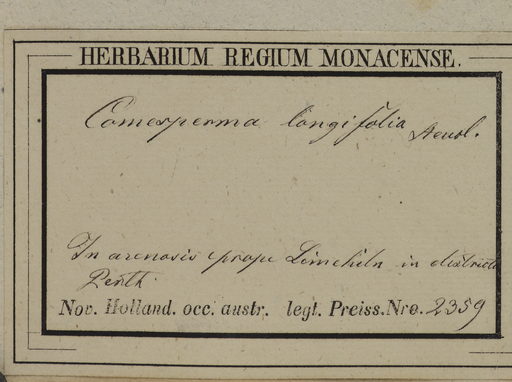 HERBARIUM REGIUM MONACENSE.
Comesperma longifolia Steud.
In arenosis prope Limekiln in districtu
Perth.
Nov. Holland. occ. austr. legt. Preiss. Nro. 2359